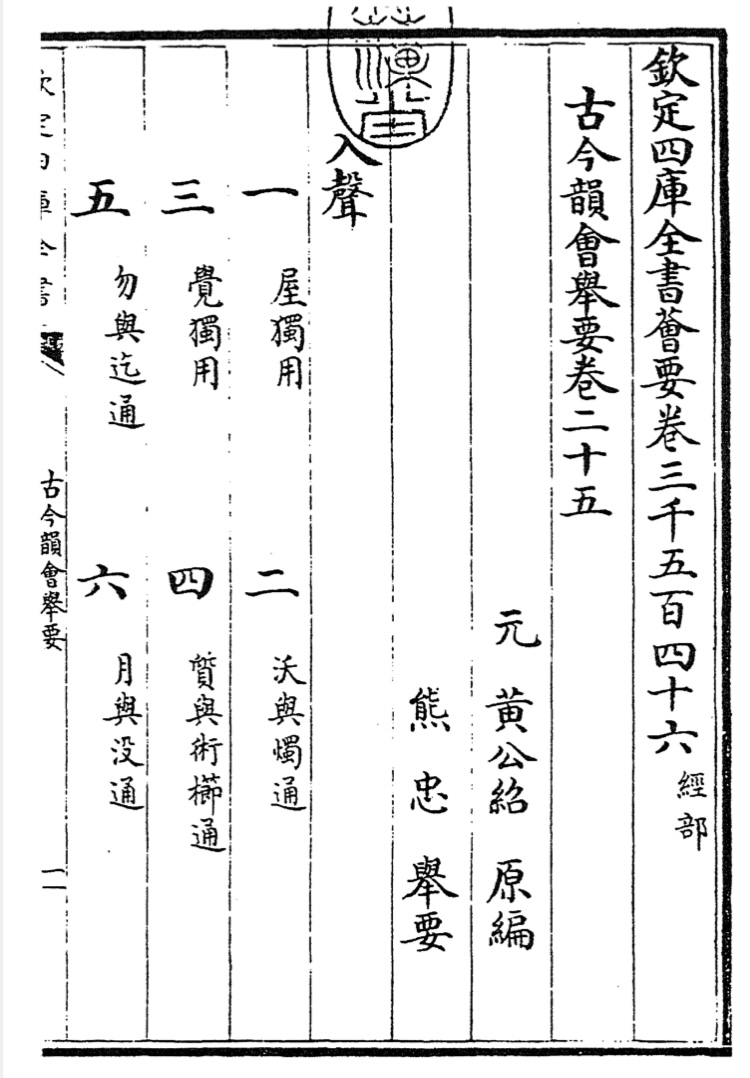 欽定四庫全書薈要卷三千五百四十六 經部
古今韻會舉要卷二十五
元 黃公紹 原編
熊忠 舉要
入聲
一 屋獨用 二 沃與燭通
三 覺獨用 四 質與術櫛通
五 勿與迄通 六 月與没通
欽定四庫全書 古今韻會舉要 一